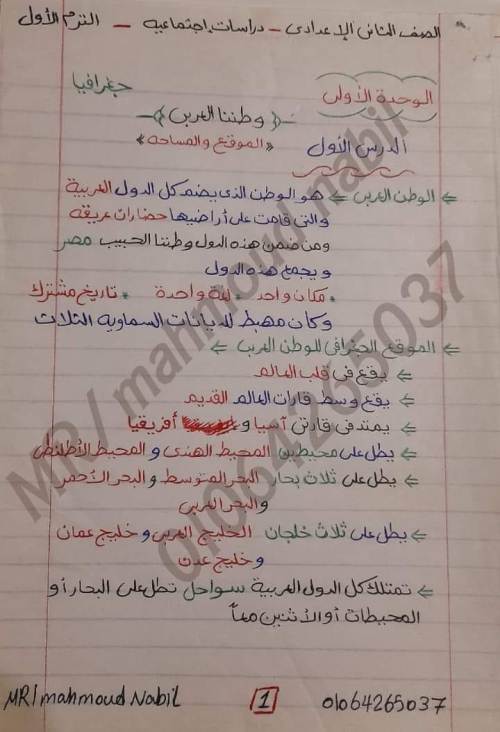 الصف الثانى الإعدادى - دراسات إجتماعيه - الترم الأول
جغرافيا
الوحدة الأولى
وطننا العربى
الدرس الأول
"الموقع والمساحه"
الوطن العربى ⇐ هو الوطن الذى يضم كل الدول العربية
والتى قامت على أراضيها حضارات عريقه
ومن ضمن هذه الدول وطننا الحبيب مصر
ويجمع هذه الدول
* مكان واحد * لغة واحدة * تاريخ مشترك
وكان مهبط للديانات السماوية الثلاث
⇐ الموقع الجغرافى للوطن العربى ⇐
⇐ يقع فى قلب العالم
⇐ يقع وسط قارات العالم القديم
⇐ يمتد فى قارتى آسيا و أفريقيا
⇐ يطل على محيطين المحيط الهندى و المحيط الأطلنطى
⇐ يطل على ثلاث بحار البحر المتوسط و البحر الأحمر
و البحر العربى
⇐ يطل على ثلاث خلجان الخليج العربى و خليج عمان
و خليج عدن
⇐ تمتلك كل الدول العربية سواحل تطل على البحار أو
المحيطات أو الأثنين معاً
MR/mahmoud Nabil 1 01064265037
MR/ mahmoud nabil
01064265037